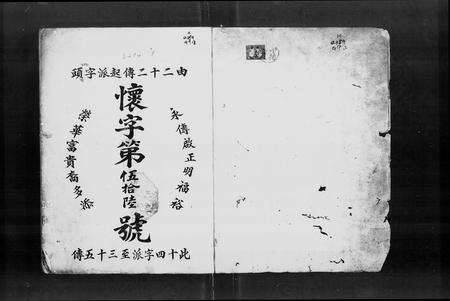 由二十二傳起派字頭
傳啟正明福裕
懷字第伍拾陸號
榮華富貴喬多
此十四字派至三十五傳